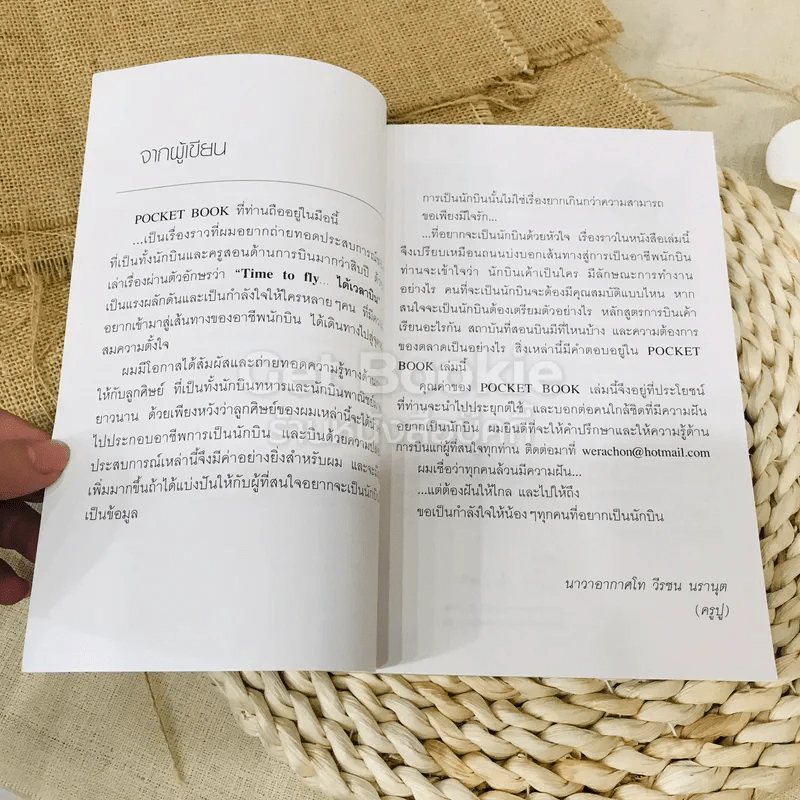 จากผู้เขียน
POCKET BOOK ที่ท่านถืออยู่ในมือนี้
...เป็นเรื่องราวที่ผมอยากถ่ายทอดประสบการณ์
ที่เป็นทั้งนักบินและครูสอนด้านการบินมากว่าสิบปี
เล่าเรื่องผ่านตัวอักษรว่า “Time to fly... ได้เวลาบิน”
เป็นแรงผลักดันและเป็นกำลังใจให้ใครหลายๆคน ที่มี
อยากเข้ามาสู่เส้นทางของอาชีพนักบิน ได้เดินทางไปสู่
สมความตั้งใจ
ผมมีโอกาสได้สัมผัสและถ่ายทอดความรู้ทางด้าน
ให้กับลูกศิษย์ ที่เป็นทั้งนักบินทหารและนักบินพาณิชย์
ยาวนาน ด้วยเพียงหวังว่าลูกศิษย์ของผมเหล่านี้จะได้
ไปประกอบอาชีพการเป็นนักบิน และบินด้วยความ
ประสบการณ์เหล่านี้จึงมีค่าอย่างยิ่งสำหรับผม และจะ
เพิ่มมากขึ้นถ้าได้แบ่งปันให้กับผู้ที่สนใจอยากจะเป็นนักบิน
เป็นข้อมูล
การเป็นนักบินนั้นไม่ใช่เรื่องยากเกินกว่าความสามารถ
ขอเพียงมีใจรัก...
...ที่อยากจะเป็นนักบินด้วยหัวใจ เรื่องราวในหนังสือเล่มนี้
จึงเปรียบเหมือนถนนบ่งบอกเส้นทางสู่การเป็นอาชีพนักบิน
ท่านจะเข้าใจว่า นักบินเค้าเป็นใคร มีลักษณะการทำงาน
อย่างไร คนที่จะเป็นนักบินจะต้องมีคุณสมบัติแบบไหน หาก
สนใจจะเป็นนักบินต้องเตรียมตัวอย่างไร หลักสูตรการบินเค้า
เรียนอะไรกัน สถาบันที่สอนบินมีที่ไหนบ้าง และความต้องการ
ของตลาดเป็นอย่างไร สิ่งเหล่านี้มีคำตอบอยู่ใน POCKET
BOOK เล่มนี้
คุณค่าของ POCKET BOOK เล่มนี้จึงอยู่ที่ประโยชน์
ที่ท่านจะนำไปประยุกต์ใช้ และบอกต่อคนใกล้ชิดที่มีความฝัน
อยากเป็นนักบิน ผมยินดีที่จะให้คำปรึกษาและให้ความรู้ด้าน
การบินแก่ผู้ที่สนใจทุกท่าน ติดต่อมาที่ werachon@hotmail.com
ผมเชื่อว่าทุกคนล้วนมีความฝัน...
...แต่ต้องฝันให้ไกล และไปให้ถึง
ขอเป็นกำลังใจให้น้องๆทุกคนที่อยากเป็นนักบิน
นาวาอากาศโท วีรชน นรานุต
(ครูปู)
Get Bookie